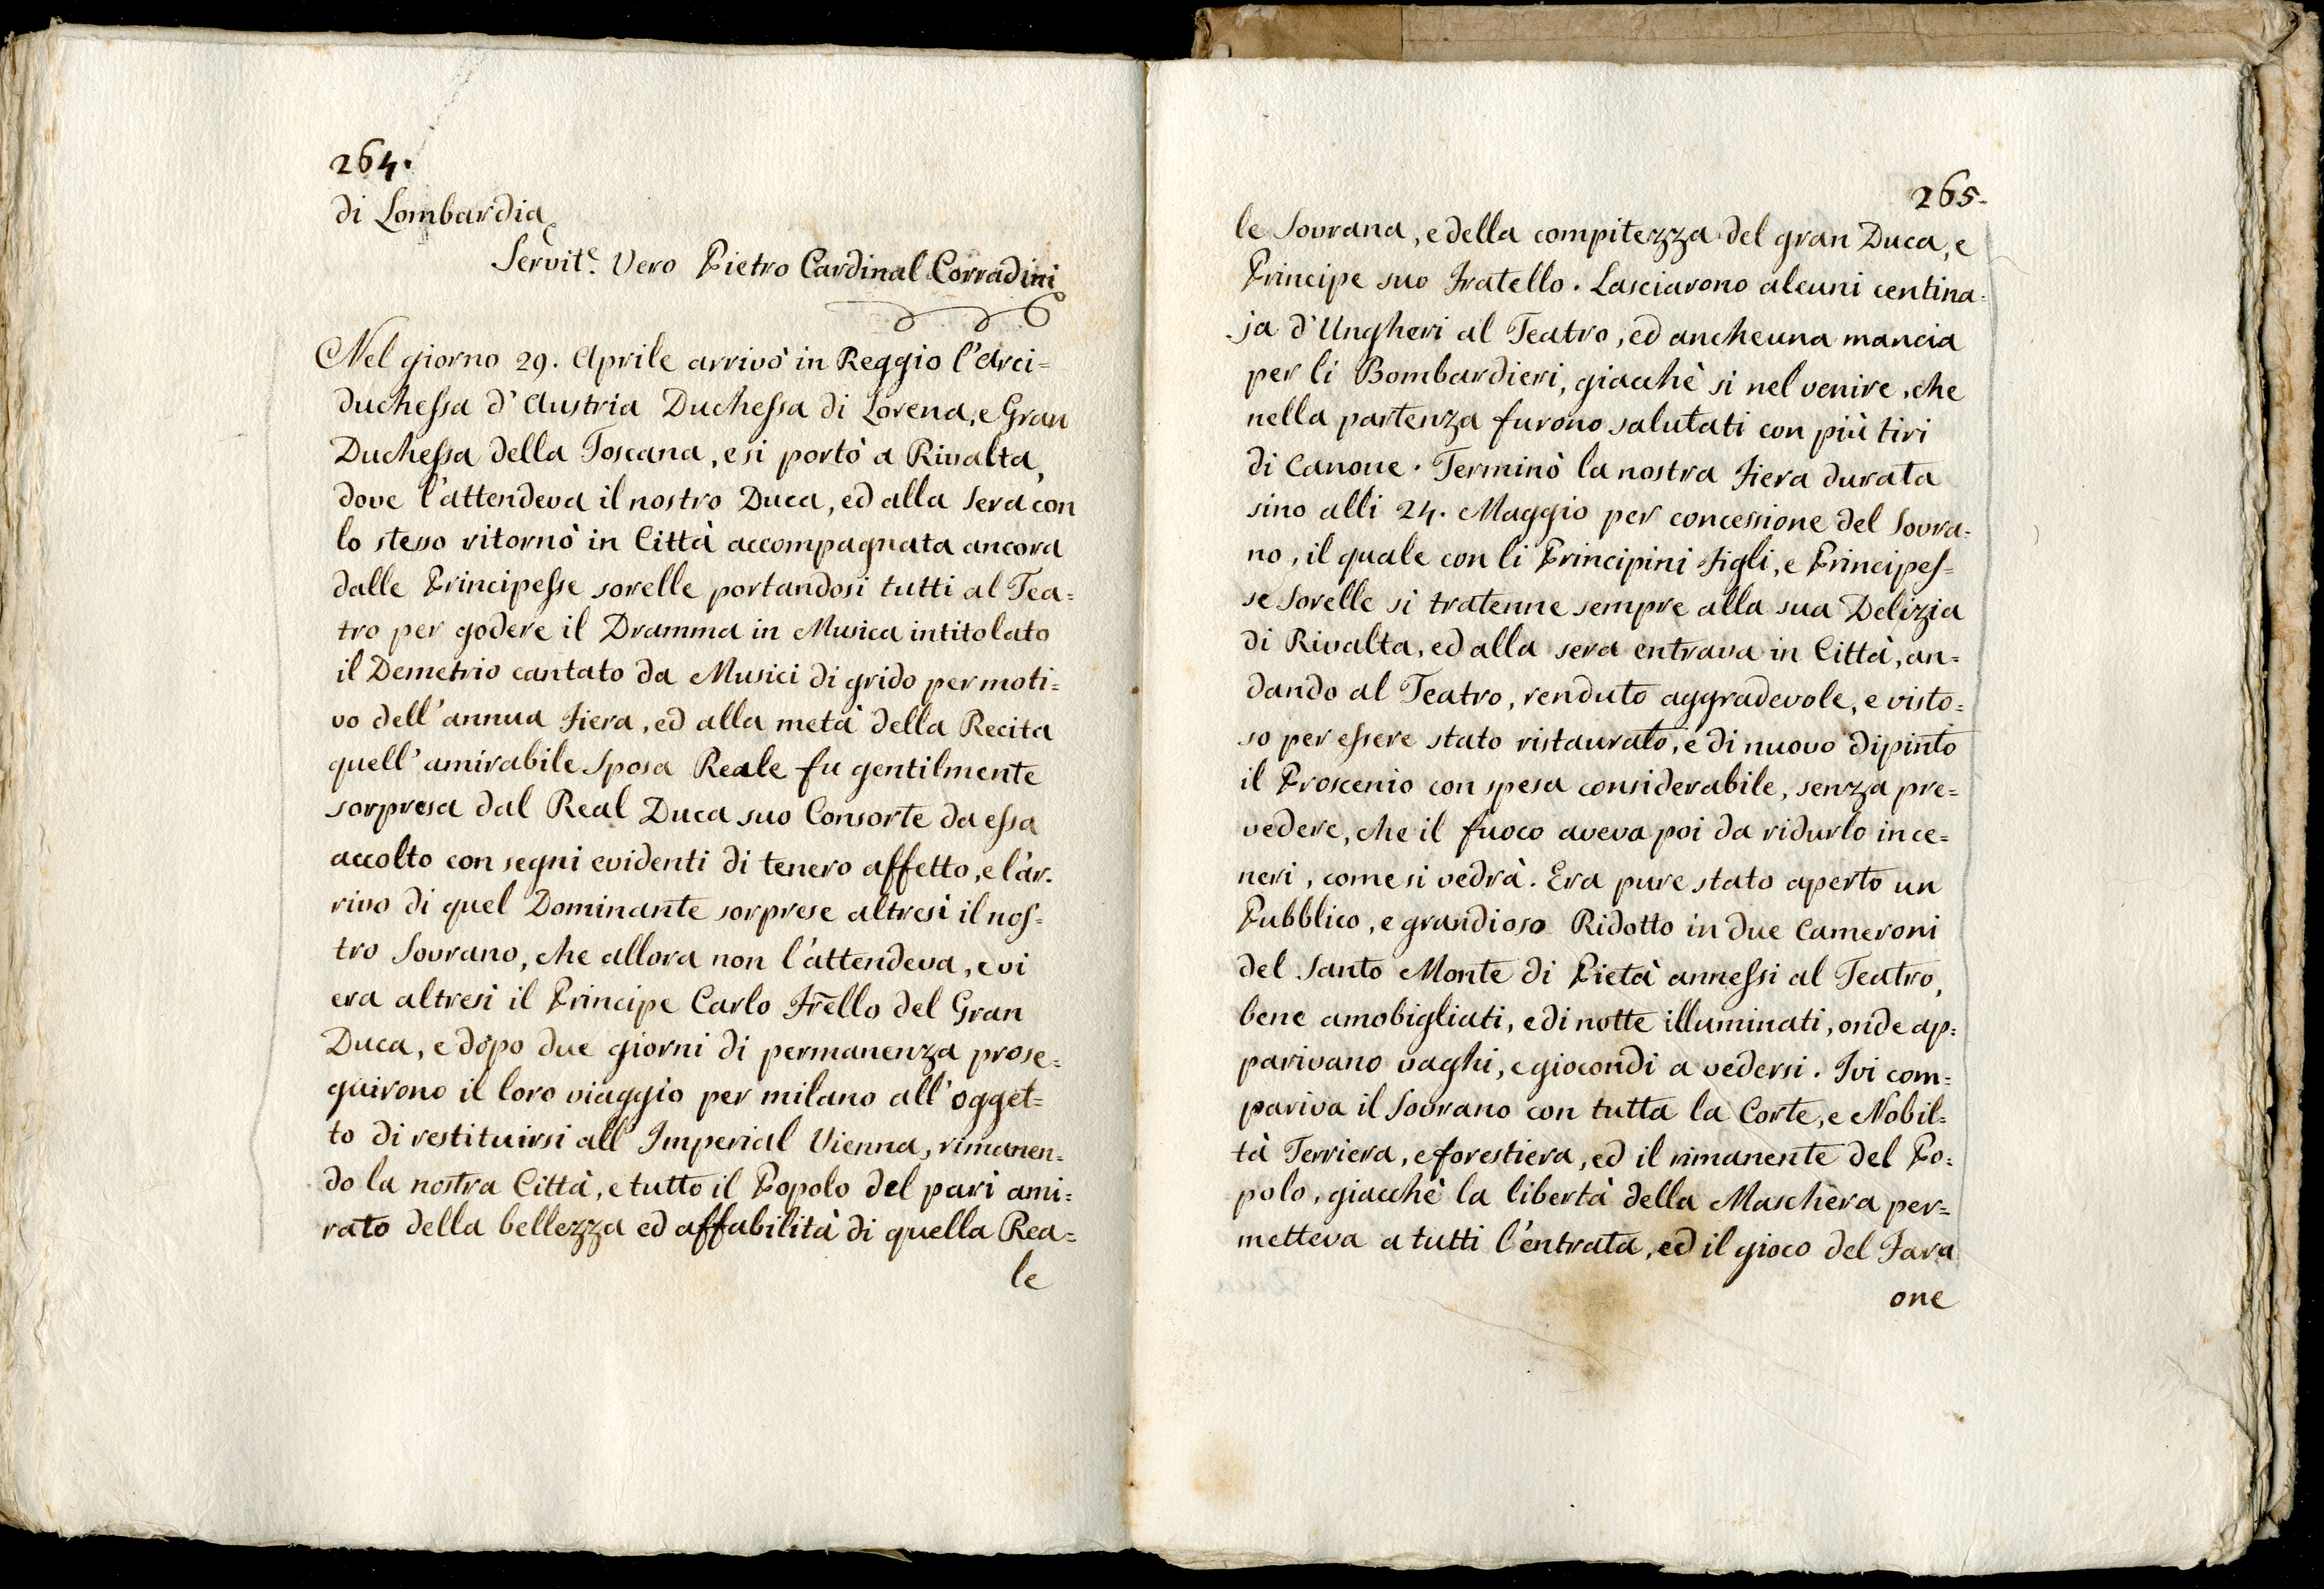 264.
di Lombardia
Servit.e Vero Pietro Cardinal Corradini
Nel giorno 29. Aprile arrivò in Reggio l'Arci=
duchessa d'Austria Duchessa di Lorena, e Gran
Duchessa della Toscana, e si portò a Rivalta,
dove l'attendeva il nostro Duca, ed alla sera con
lo stesso ritornò in Città accompagnata ancora
dalle Principesse sorelle portandosi tutti al Tea=
tro per godere il Dramma in Musica intitolato
il Demetrio cantato da Musici di grido per moti=
vo dell'annua Fiera, ed alla metà della Recita
quell'amirabile Sposa Reale fu gentilmente
sorpresa dal Real Duca suo Consorte da essa
accolto con segni evidenti di tenero affetto, e l'ar.
rivo di quel Dominante sorprese altresì il nos=
tro Sovrano, che allora non l'attendeva, e vi
era altresì il Principe Carlo Fr̃ello del Gran
Duca, e dòpo due giorni di permanenza prose=
guirono il loro viaggio per milano all'ogget=
to di restituirsi all'Imperial Vienna, rimanen=
do la nostra Città, e tutto il Popolo del pari ami=
rato della bellezza ed affabilità di quella Rea=
le
265.
le Sovrana, e della compitezza del gran Duca, e
Principe suo Fratello. Lasciarono alcuni centina=
ja d'Ungheri al Teatro, ed anche una mancia
per li Bombardieri, giacchè si nel venire, che
nella partenza furono salutati con più tiri
di Canone. Terminò la nostra Fiera durata
sino alli 24. Maggio per concessione del Sovra=
no, il quale con li Principini Figli, e Principes=
se Sorelle si tratenne sempre alla sua Delizia
di Rivalta, ed alla sera entrava in Città, an=
dando al Teatro, renduto aggradevole, e visto=
so per essere stato ristaurato, e di nuovo dipinto
il Proscenio con spesa considerabile, senza pre=
vedere, che il fuoco aveva poi da ridurlo in ce=
neri, come si vedrà. Era pure stato aperto un
Pubblico, e grandioso Ridotto in due Cameroni
del Santo Monte di Pietà annessi al Teatro,
bene amobigliati, e di notte illuminati, onde ap=
parivano vaghi, e giocondi a vedersi. Ivi com=
pariva il Sovrano con tutta la Corte, e Nobil=
tà Terriera, e forestiera, ed il rimanente del Po=
polo, giacchè la libertà della Maschera per=
metteva a tutti l'entrata, ed il gioco del Fara
one